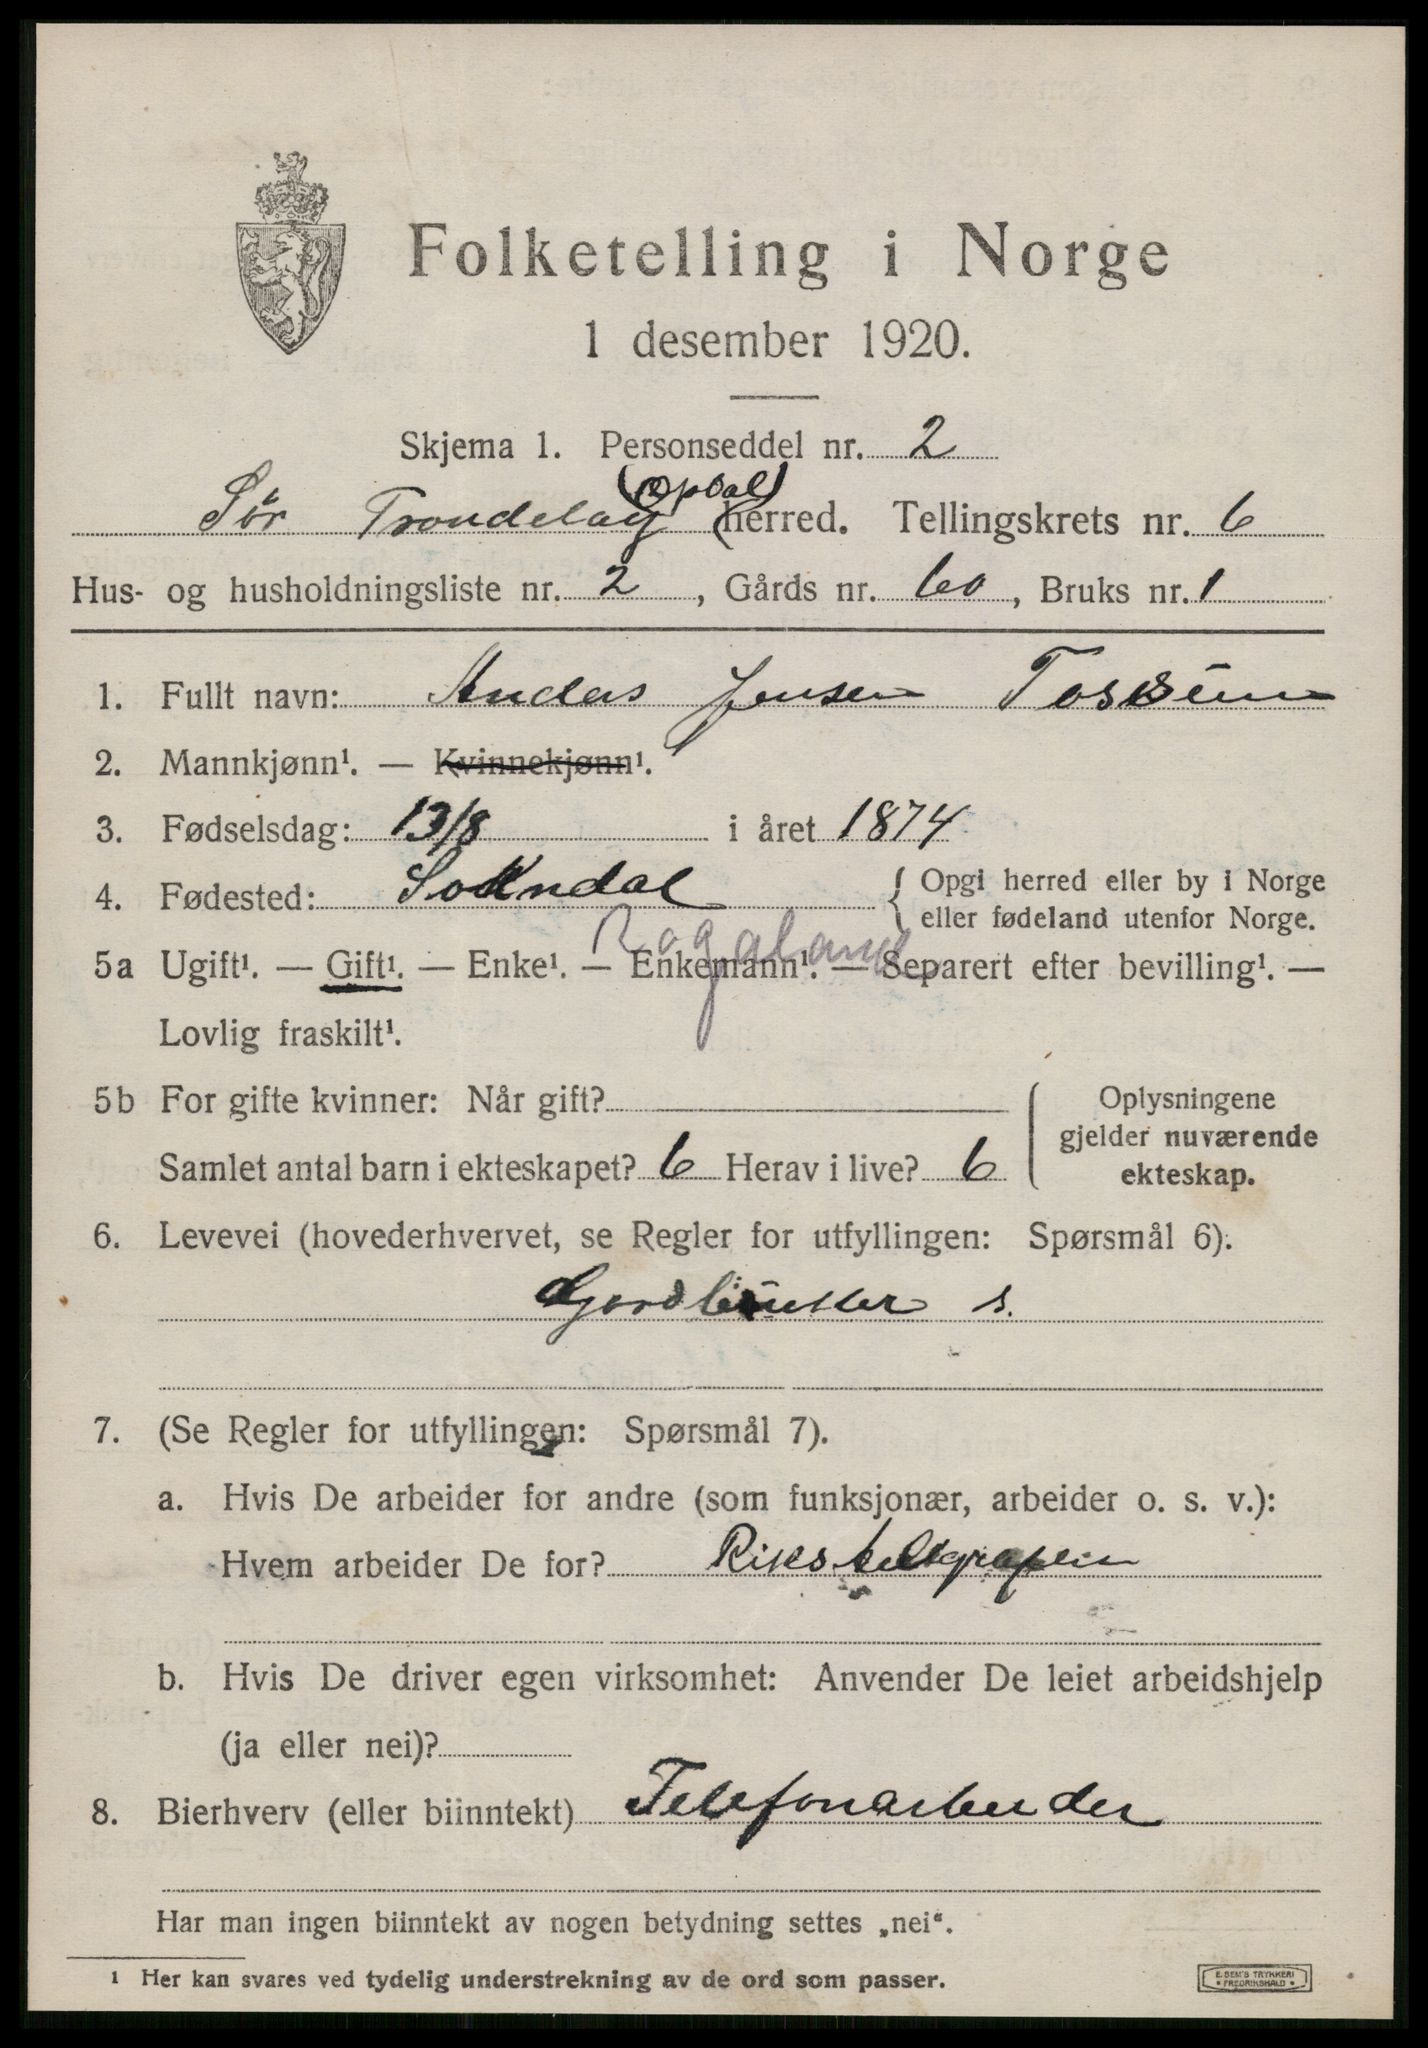 Folketelling i Norge
1 desember 1920.
Skjema 1. Personseddel nr. 2
(Opdal)
Sör Trondelag herred. Tellingskrets nr. 6
Hus- og husholdningsliste nr. 2, Gårds nr. 60, Bruks nr. 1
1. Fullt navn: Anders Jensen
2. Mannkjønn¹. — Kvinnekjønn¹.
3. Fødselsdag: 13/8 i året 1874
4. Fødested: Sokndal { Opgi herred eller by i Norge
eller fødeland utenfor Norge.
Rogaland
5a Ugift¹. — Gift¹. — Enke¹. — Enkemann¹. — Separert efter bevilling¹. —
Lovlig fraskilt¹.
5b For gifte kvinner: Når gift?
Samlet antal barn i ekteskapet? 6 Herav i live? 6
Oplysningene
gjelder nuværende
ekteskap.
6. Levevei (hovederhvervet, se Regler for utfyllingen: Spørsmål 6).
Gordbruker s.
7. (Se Regler for utfyllingen: Spørsmål 7).
a. Hvis De arbeider for andre (som funksjonær, arbeider o. s. v.):
Hvem arbeider De for? Rikstelegrafen
b. Hvis De driver egen virksomhet: Anvender De leiet arbeidshjelp
(ja eller nei)?
8. Bierhverv (eller biinntekt) Telefonarbeider
Har man ingen biinntekt av nogen betydning settes „nei“.
¹ Her kan svares ved tydelig understrekning av de ord som passer.
E. SEM'S TRYKKERI
• FREDRIKSHALD •